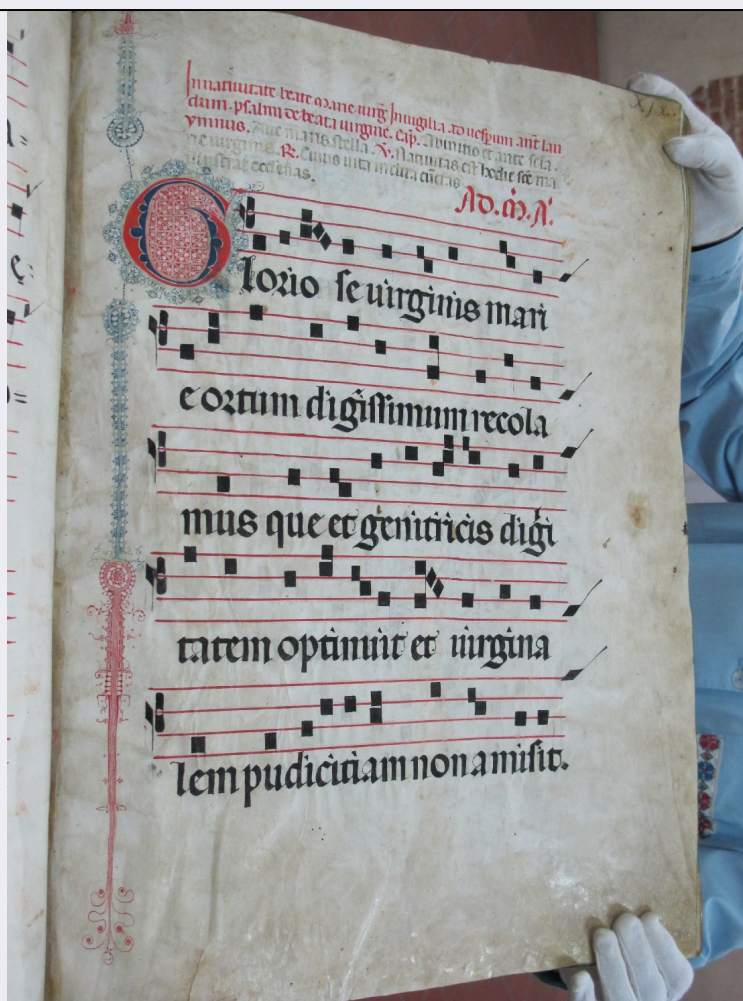 In natiuitate beate marie uirg̃ In uigilia ad uesp̃um añt lau
dum. psalmi de beata uirgine. Cap̃. Ab initio et ante secla.
ymnus. Aue maris stella. V̇. Natiuitas est hodie sc̃e ma
rie uirginis. R̃. Cuius uita inclita cũctas
illustrat ecclesias.
AD. M̃. A.
Glorio se uirginis mari
e ortum digissimum recola
mus que et genitricis digi
tatem optinuit et uirgina
lem pudicitiam non amisit.